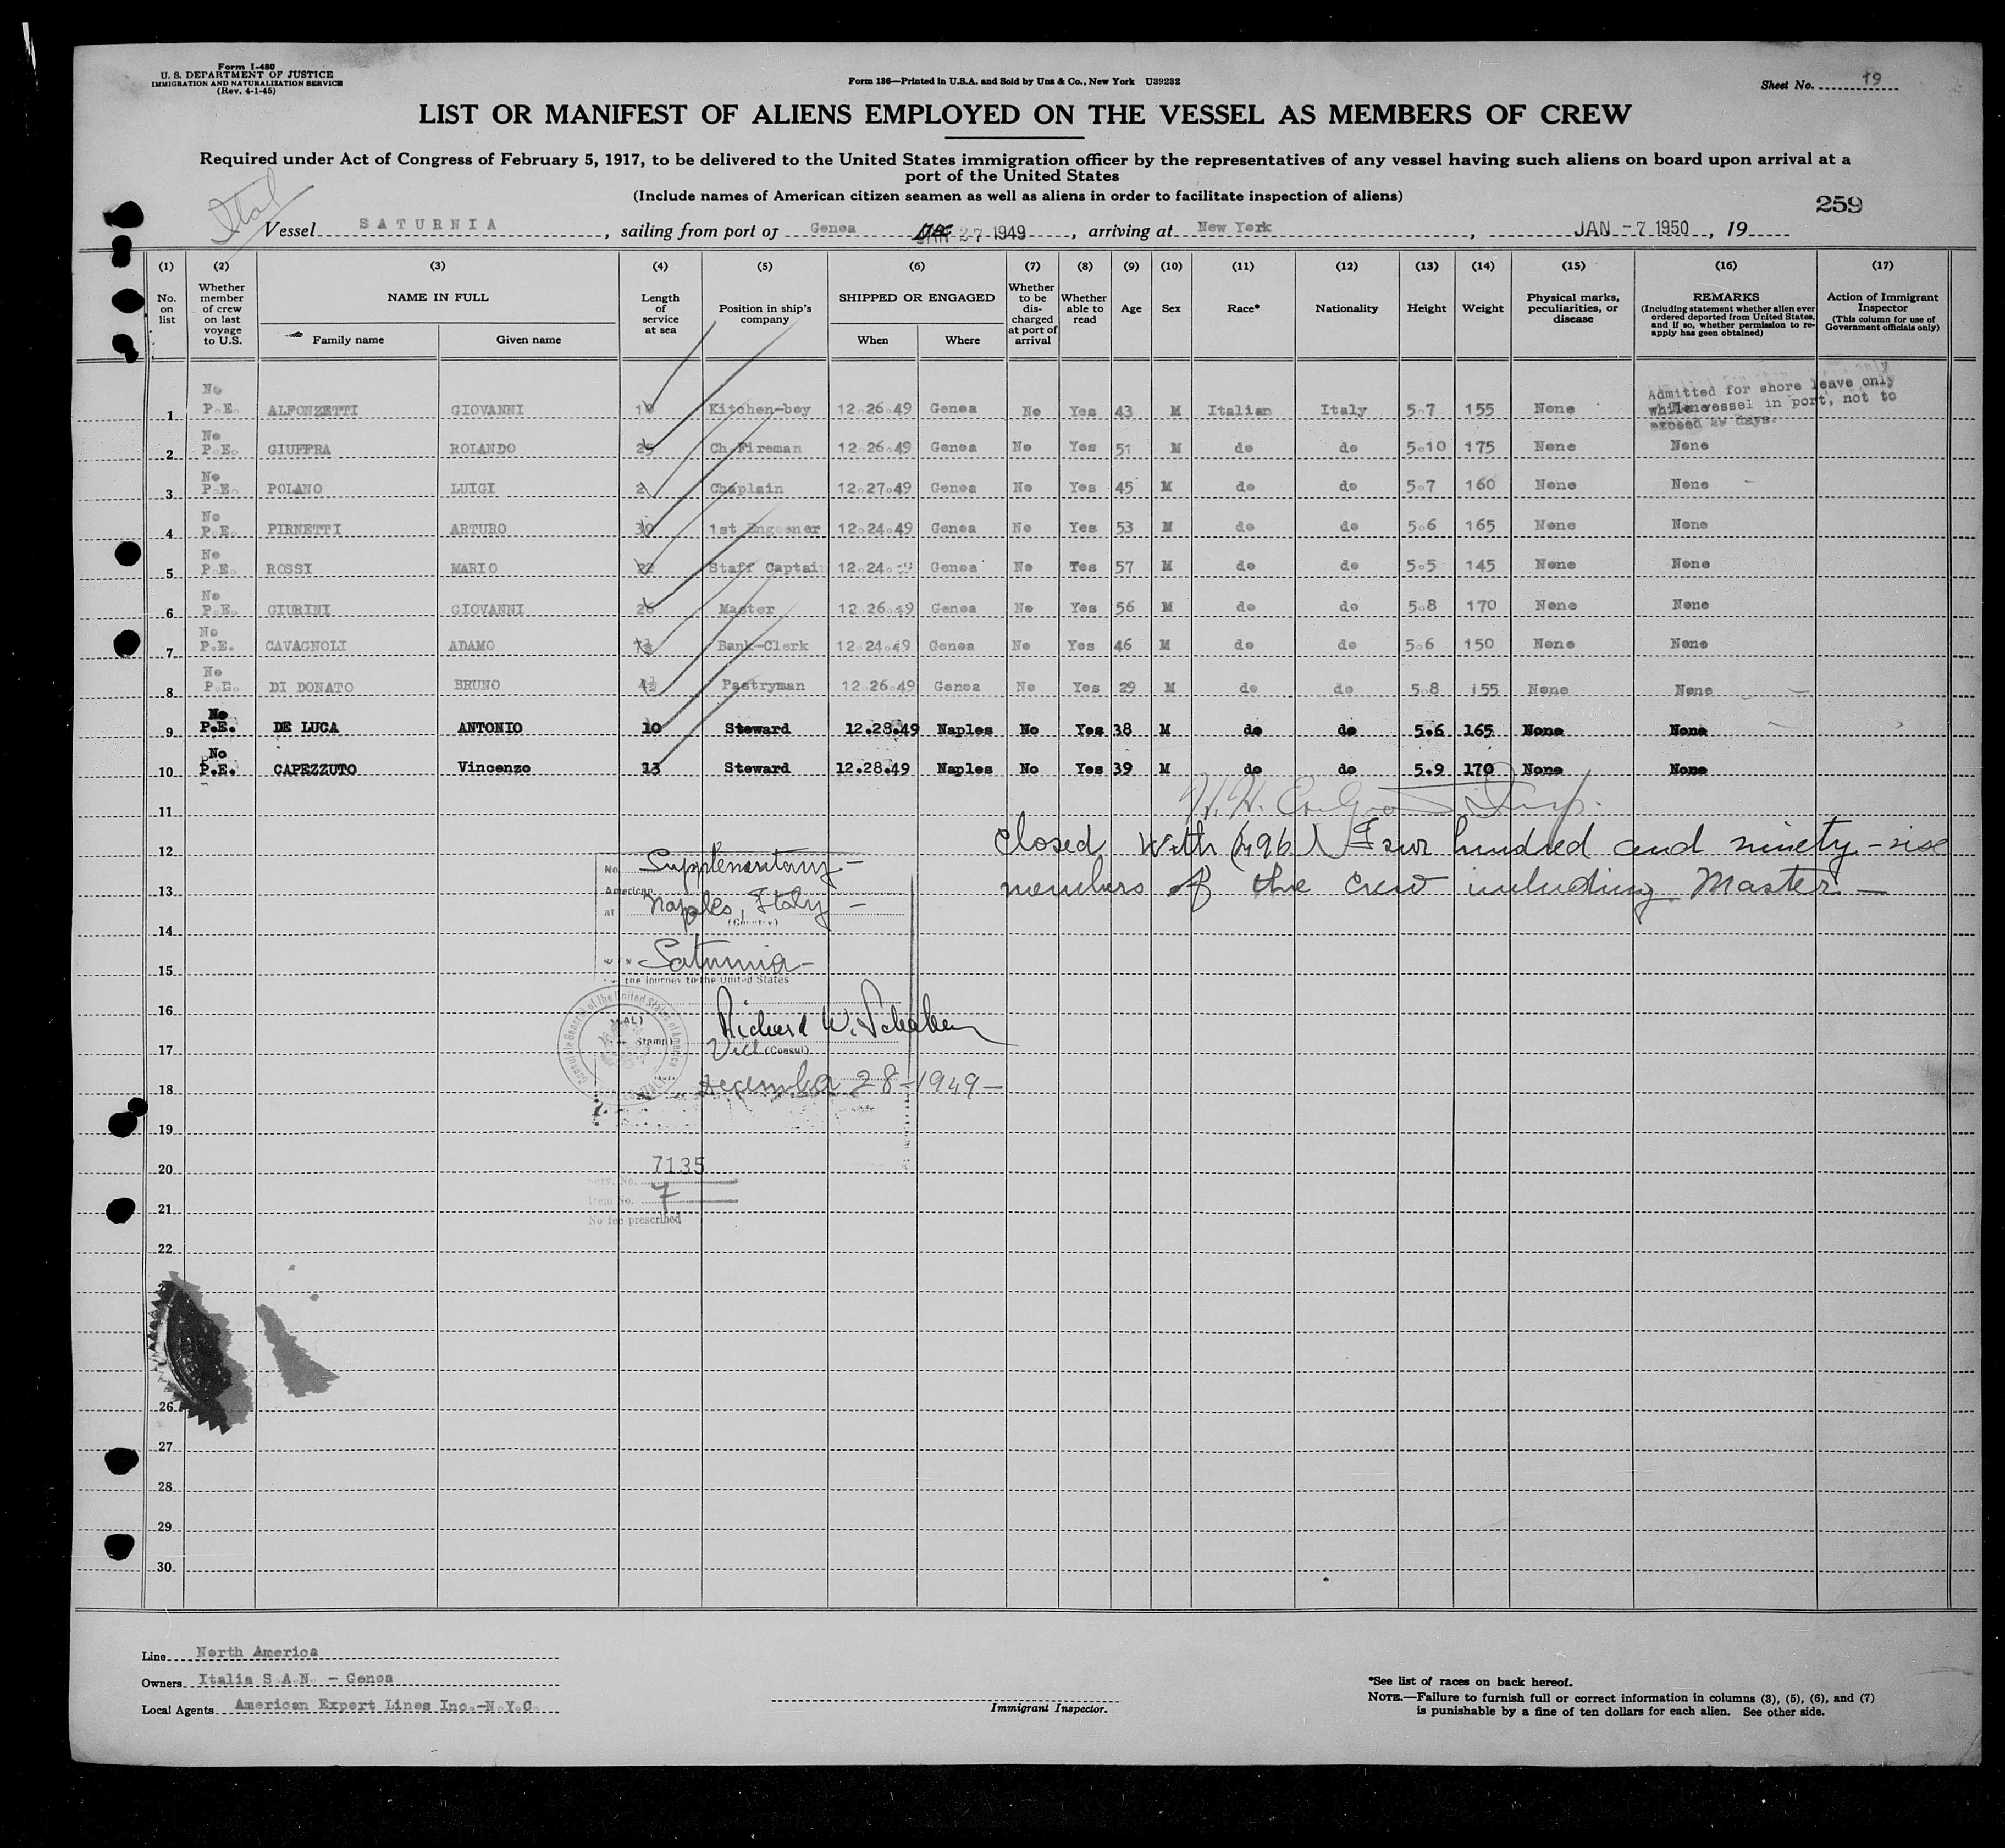 Form I-480
U. S. DEPARTMENT OF JUSTICE
IMMIGRATION AND NATURALIZATION SERVICE
(Rev. 4-1-45)
Form 136—Printed in U.S.A. and Sold by Unz & Co., New York U39232
Sheet No. 19
LIST OR MANIFEST OF ALIENS EMPLOYED ON THE VESSEL AS MEMBERS OF CREW
Required under Act of Congress of February 5, 1917, to be delivered to the United States immigration officer by the representatives of any vessel having such aliens on board upon arrival at a
port of the United States
(Include names of American citizen seamen as well as aliens in order to facilitate inspection of aliens)
259
Ital
Vessel SATURNIA, sailing from port of Genoa DEC 27 1949, arriving at New York, JAN -7 1950, 19
(1) (2) (3) (4) (5) (6) (7) (8) (9) (10) (11) (12) (13) (14) (15) (16) (17)
No. on list
Whether member of crew on last voyage to U.S.
NAME IN FULL
Family name Given name
Length of service at sea
Position in ship's company
SHIPPED OR ENGAGED
When Where
Whether to be discharged at port of arrival
Whether able to read
Age
Sex
Race*
Nationality
Height
Weight
Physical marks, peculiarities, or disease
REMARKS
(Including statement whether alien ever ordered deported from United States, and if so, whether permission to re-apply has been obtained)
Action of Immigrant Inspector
(This column for use of Government officials only)
Admitted for shore leave only
while vessel in port, not to
exceed 29 days.
1 No P.E. ALFONZETTI GIOVANNI Kitchen-boy 12.26.49 Genoa No Yes 43 M Italian Italy 5.7 155 None
2 No P.E. GIUFFRA ROLANDO 25 Ch.Fireman 12.26.49 Genoa No Yes 51 M do do 5.10 175 None None
3 No P.E. POLANO LUIGI 2 Chaplain 12.27.49 Genoa No Yes 45 M do do 5.7 160 None None
4 No P.E. PIRNETTI ARTURO 30 1st Engeener 12.24.49 Genoa No Yes 53 M do do 5.6 165 None None
5 No P.E. ROSSI MARIO 22 Staff Captain 12.24.49 Genoa No Yes 57 M do do 5.5 145 None None
6 No P.E. GIURINI GIOVANNI 26 Master 12.26.49 Genoa No Yes 56 M do do 5.8 170 None None
7 No P.E. CAVAGNOLI ADAMO Bank-Clerk 12.24.49 Genoa No Yes 46 M do do 5.6 150 None None
8 No P.E. DI DONATO BRUNO Pastryman 12.26.49 Genoa No Yes 29 M do do 5.8 155 None None
9 No P.E. DE LUCA ANTONIO 10 Steward 12.28.49 Naples No Yes 38 M do do 5.6 165 None None
10 No P.E. CAPEZZUTO Vincenzo 13 Steward 12.28.49 Naples No Yes 39 M do do 5.9 170 None None
11
12
13
14
15
16
17
18
19
20
21
22
26
27
28
29
30
Closed with (496) Four hundred and ninety-six
members of the crew including Master —
No. Supplementary —
American
at Naples, Italy —
(Country)
Saturnia —
the journey to the United States
Consulate General of the United States of America
Richard W.
Vice (Consul)
December 28-1949-
7135
Serv. No.
Item No. 7
No fee prescribed
Line North America
Owners Italia S.A.N. - Genoa
Local Agents American Export Lines Inc.-N.Y.C.
Immigrant Inspector.
*See list of races on back hereof.
NOTE.—Failure to furnish full or correct information in columns (3), (5), (6), and (7)
is punishable by a fine of ten dollars for each alien. See other side.